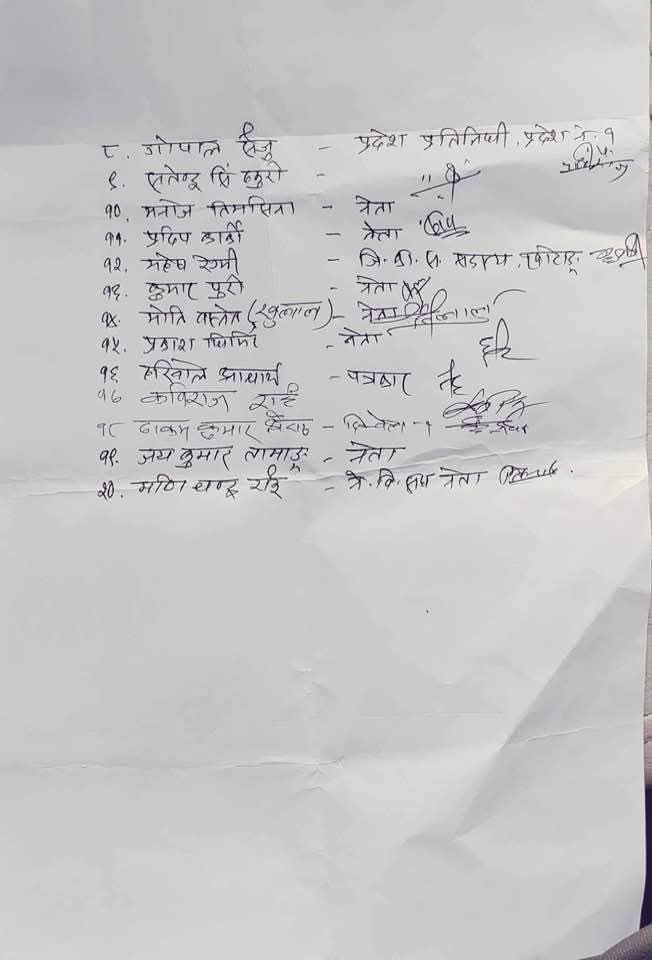 ८. गोपाल राजु - प्रदेश प्रतिनिधी, प्रदेश नं. १
९. सतेन्द्र सिं ठकुरी - "
१०. मनोज तिमसिना - नेता
११. प्रदिप कार्की - नेता
१२. महेष रेग्मी - जि. का. स. सदस्य, खोटाङ
१३. कुमार पुरी - नेता
१४. मोति बस्नेत - नेता
१५. प्रकाश घिमिरे - नेता
१६ हरिबोल आचार्य - पत्रकार
१७ कविराज राई
१८ कुमार
१९. जय कुमार तामाङ - नेता
२०. मणि चन्द्र राई - ने. वि. संघ नेता